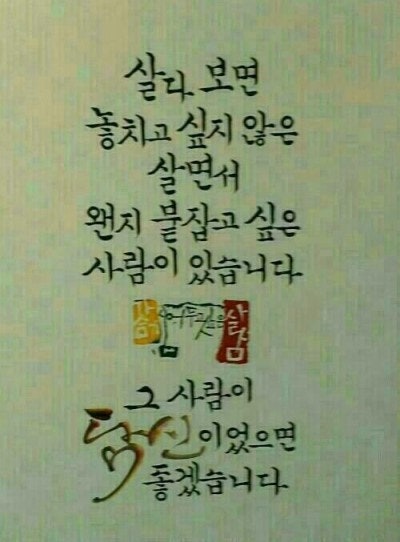 살다 보면
놓치고 싶지 않은
살면서
왠지 붙잡고 싶은
사람이 있습니다
그 사람이
당신이었으면
좋겠습니다